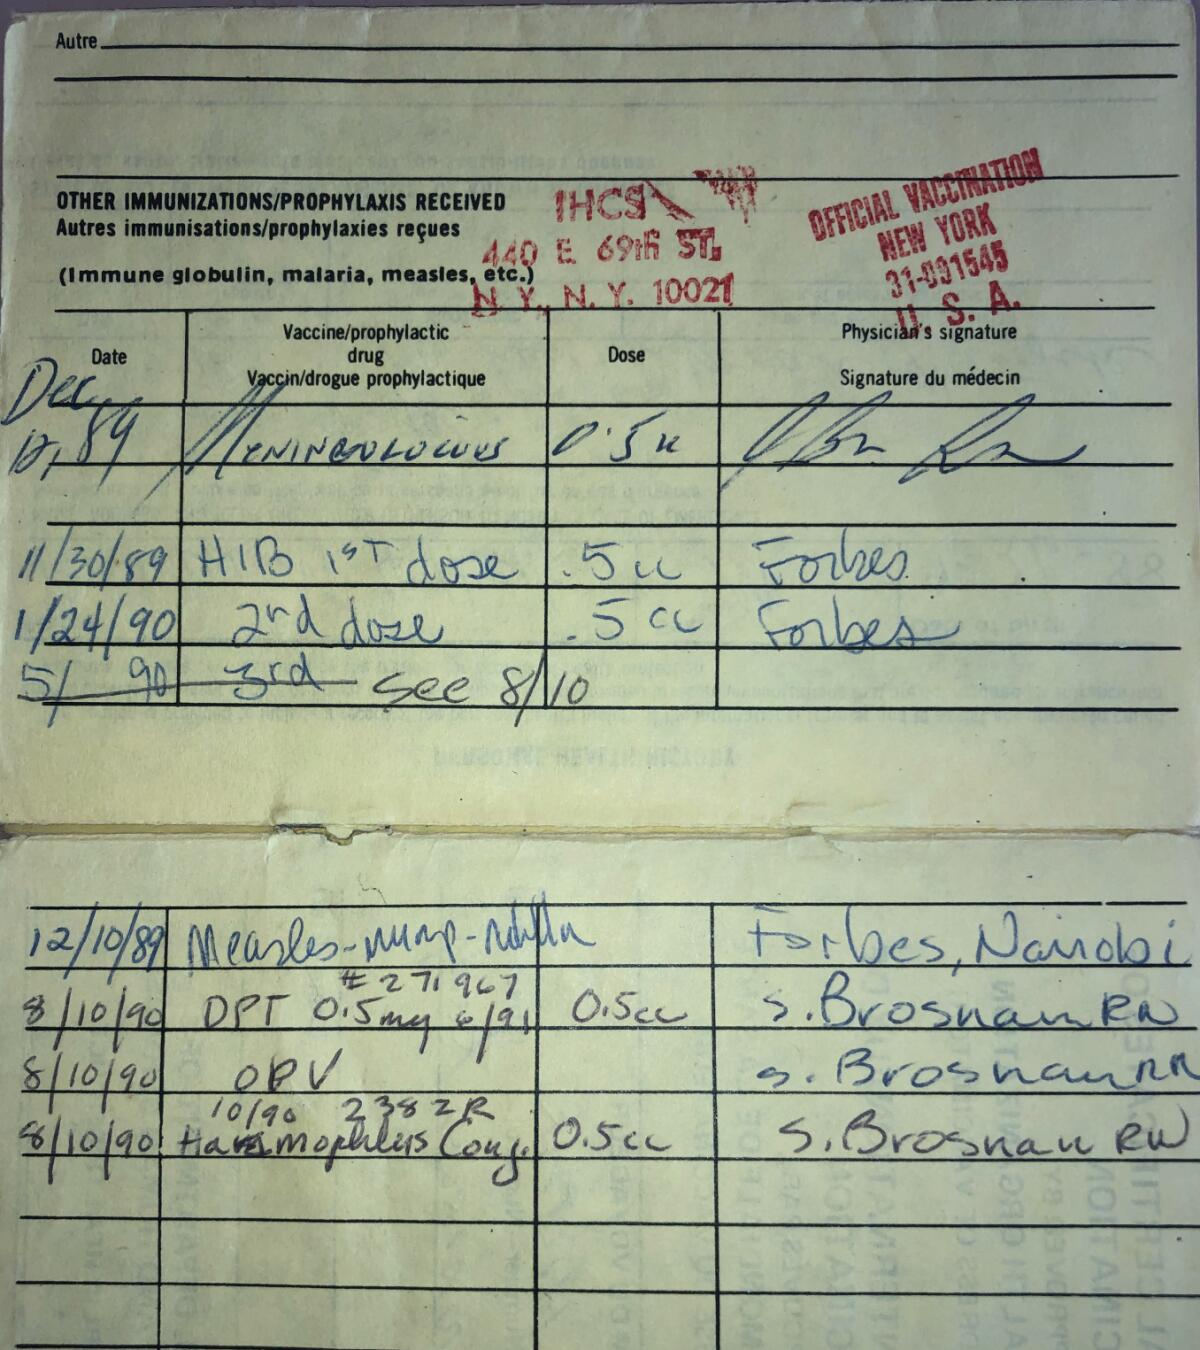 Autre
OTHER IMMUNIZATIONS/PROPHYLAXIS RECEIVED
Autres immunisations/prophylaxies reçues
(Immune globulin, malaria, measles, etc.)
IHCS
440 E 69th ST.
N. Y., N. Y. 10021
OFFICIAL VACCINATION
NEW YORK
31-001545
U. S. A.
Date
Vaccine/prophylactic
drug
Vaccin/drogue prophylactique
Dose
Physician's signature
Signature du médecin
Dec
12, 89 0.5
11/30/89 HIB 1ST dose .5 cc Forbes
1/24/90 2nd dose .5 cc Forbes
5/ 90 3rd see 8/10
12/10/89 Measles-mump- Forbes, Nairobi
#271967
8/10/90 DPT 0.5 mg 6/91 0.5cc S. Brosnan RN
8/10/90 OPV S. Brosnan RN
10/90 2382R
8/10/90 Haemophilus Conj. 0.5cc S. Brosnan RN